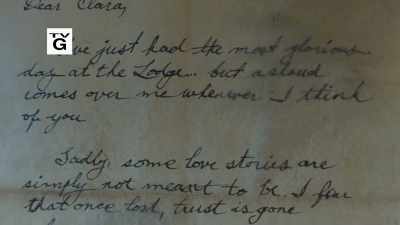 Dear Clara,
TV
G
I've just had the most glorious
day at the Lodge... but a cloud
comes over me whenever I think
of you
Sadly, some love stories are
simply not meant to be. I fear
that once lost, trust is gone